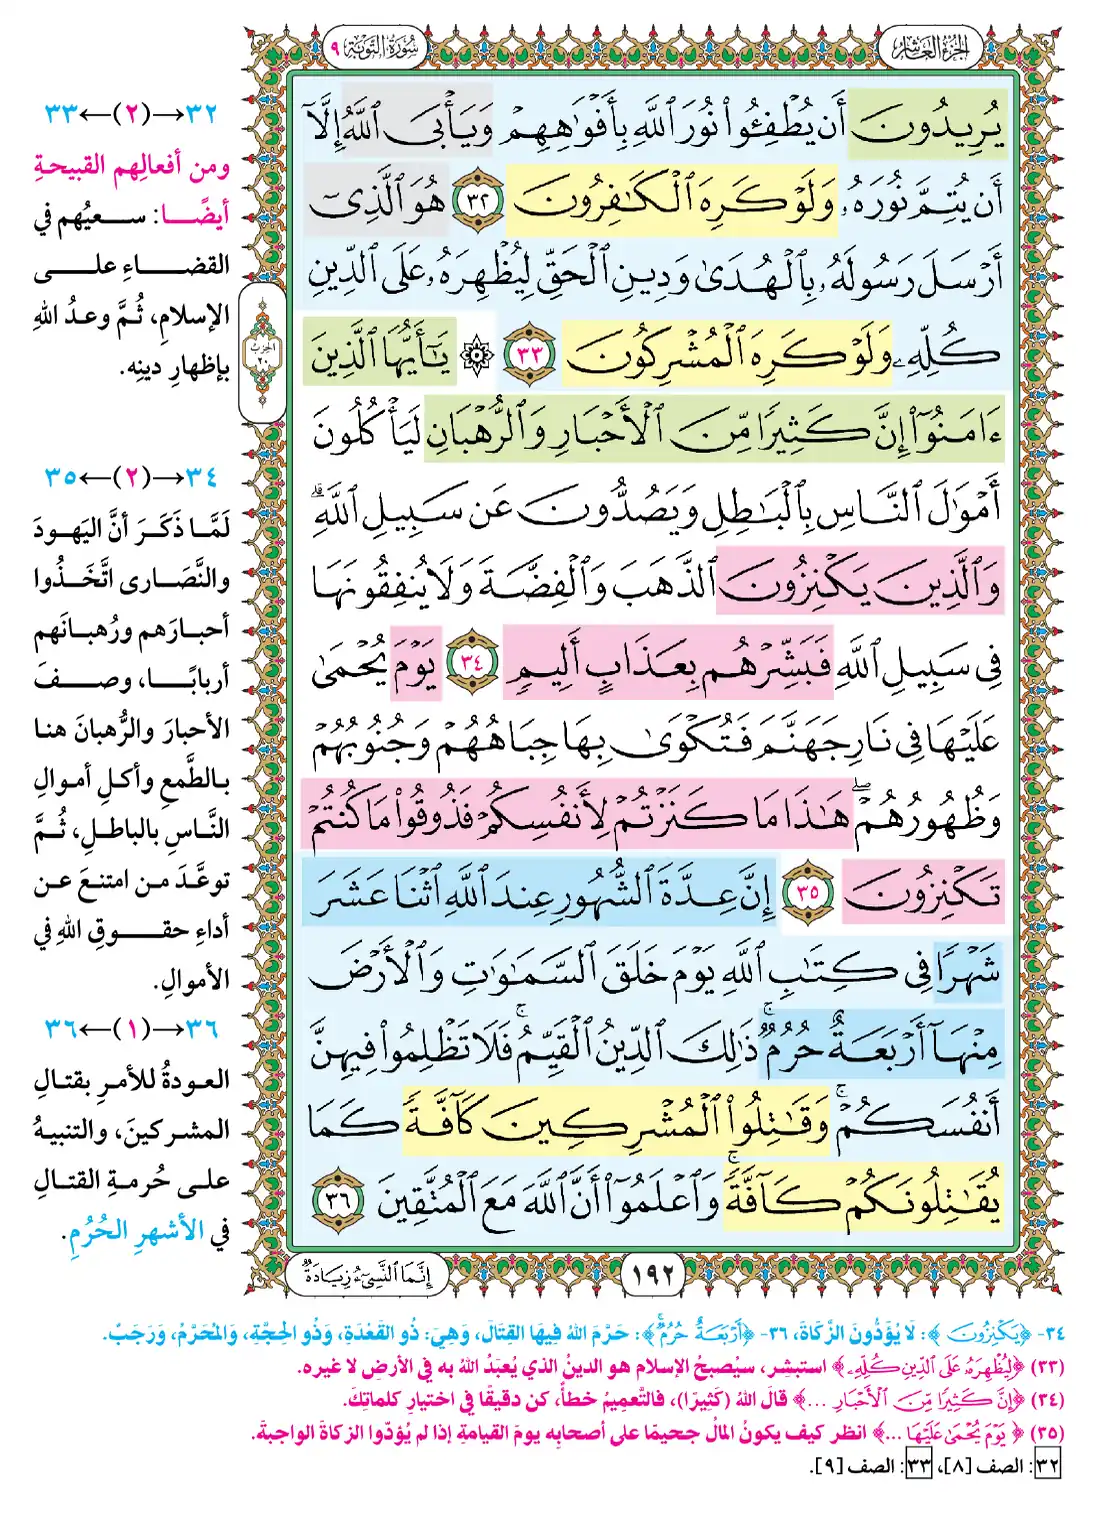 الجزء العاشر
سُورَةُ التَّوْبَةِ ٩
يُرِيدُونَ أَن يُطْفِـُٔوا۟ نُورَ ٱللَّهِ بِأَفْوَٰهِهِمْ وَيَأْبَى ٱللَّهُ إِلَّآ
أَن يُتِمَّ نُورَهُۥ وَلَوْ كَرِهَ ٱلْكَٰفِرُونَ ٣٢ هُوَ ٱلَّذِىٓ
أَرْسَلَ رَسُولَهُۥ بِٱلْهُدَىٰ وَدِينِ ٱلْحَقِّ لِيُظْهِرَهُۥ عَلَى ٱلدِّينِ
كُلِّهِۦ وَلَوْ كَرِهَ ٱلْمُشْرِكُونَ ٣٣ ۞ يَٰٓأَيُّهَا ٱلَّذِينَ
ءَامَنُوٓا۟ إِنَّ كَثِيرًا مِّنَ ٱلْأَحْبَارِ وَٱلرُّهْبَانِ لَيَأْكُلُونَ
أَمْوَٰلَ ٱلنَّاسِ بِٱلْبَٰطِلِ وَيَصُدُّونَ عَن سَبِيلِ ٱللَّهِ ۗ
وَٱلَّذِينَ يَكْنِزُونَ ٱلذَّهَبَ وَٱلْفِضَّةَ وَلَا يُنفِقُونَهَا
فِى سَبِيلِ ٱللَّهِ فَبَشِّرْهُم بِعَذَابٍ أَلِيمٍ ٣٤ يَوْمَ يُحْمَىٰ
عَلَيْهَا فِى نَارِ جَهَنَّمَ فَتُكْوَىٰ بِهَا جِبَاهُهُمْ وَجُنُوبُهُمْ
وَظُهُورُهُمْ ۖ هَٰذَا مَا كَنَزْتُمْ لِأَنفُسِكُمْ فَذُوقُوا۟ مَا كُنتُمْ
تَكْنِزُونَ ٣٥ إِنَّ عِدَّةَ ٱلشُّهُورِ عِندَ ٱللَّهِ ٱثْنَا عَشَرَ
شَهْرًا فِى كِتَٰبِ ٱللَّهِ يَوْمَ خَلَقَ ٱلسَّمَٰوَٰتِ وَٱلْأَرْضَ
مِنْهَآ أَرْبَعَةٌ حُرُمٌ ۚ ذَٰلِكَ ٱلدِّينُ ٱلْقَيِّمُ ۚ فَلَا تَظْلِمُوا۟ فِيهِنَّ
أَنفُسَكُمْ ۚ وَقَٰتِلُوا۟ ٱلْمُشْرِكِينَ كَآفَّةً كَمَا
يُقَٰتِلُونَكُمْ كَآفَّةً ۚ وَٱعْلَمُوٓا۟ أَنَّ ٱللَّهَ مَعَ ٱلْمُتَّقِينَ ٣٦
١٩٢
إِنَّمَا ٱلنَّسِىٓءُ زِيَادَةٌ
الحزب
٢٠
٣٢→(٢)←٣٣
ومن أفعالِهم القبيحةِ
أيضًا: سعيُهم في
القضاءِ على
الإسلامِ، ثُمَّ وعدُ اللهِ
بإظهارِ دينِه.
٣٤→(٢)←٣٥
لَمَّا ذَكَرَ أنَّ اليَهودَ
والنَّصَارى اتَّخَذُوا
أحبارَهم ورُهبانَهم
أربابًا، وصفَ
الأحبارَ والرُّهبانَ هنا
بالطَّمعِ وأكلِ أموالِ
النَّاسِ بالباطلِ، ثُمَّ
توعَّدَ من امتنعَ عن
أداءِ حقوقِ اللهِ في
الأموالِ.
٣٦→(١)←٣٦
العودةُ للأمرِ بقتالِ
المشركينَ، والتنبيهُ
على حُرمةِ القتالِ
في الأشهرِ الحُرُمِ.
٣٤- ﴿يَكْنِزُونَ﴾: لَا يُؤَدُّونَ الزَّكَاةَ، ٣٦- ﴿أَرْبَعَةٌ حُرُمٌ﴾: حَرَّمَ اللهُ فِيهَا القِتَالَ، وَهِيَ: ذُو القَعْدَةِ، وَذُو الحِجَّةِ، وَالمُحَرَّمُ، وَرَجَبٌ.
(٣٣) ﴿لِيُظْهِرَهُۥ عَلَى ٱلدِّينِ كُلِّهِۦ﴾ استبشِر، سيُصبحُ الإسلام هو الدينُ الذي يُعبَدُ اللهُ به في الأرضِ لا غيره.
(٣٤) ﴿إِنَّ كَثِيرًا مِّنَ ٱلْأَحْبَارِ ...﴾ قالَ اللهُ (كَثِيرًا)، فالتَّعمِيمُ خطأٌ، كن دقيقًا في اختيارِ كلماتِكَ.
(٣٥) ﴿يَوْمَ يُحْمَىٰ عَلَيْهَا ...﴾ انظر كيف يكونُ المالُ جحيمًا على أصحابِه يومَ القيامةِ إذا لم يُؤدّوا الزكاةَ الواجبةَ.
٣٢: الصف [٨]، ٣٣: الصف [٩].